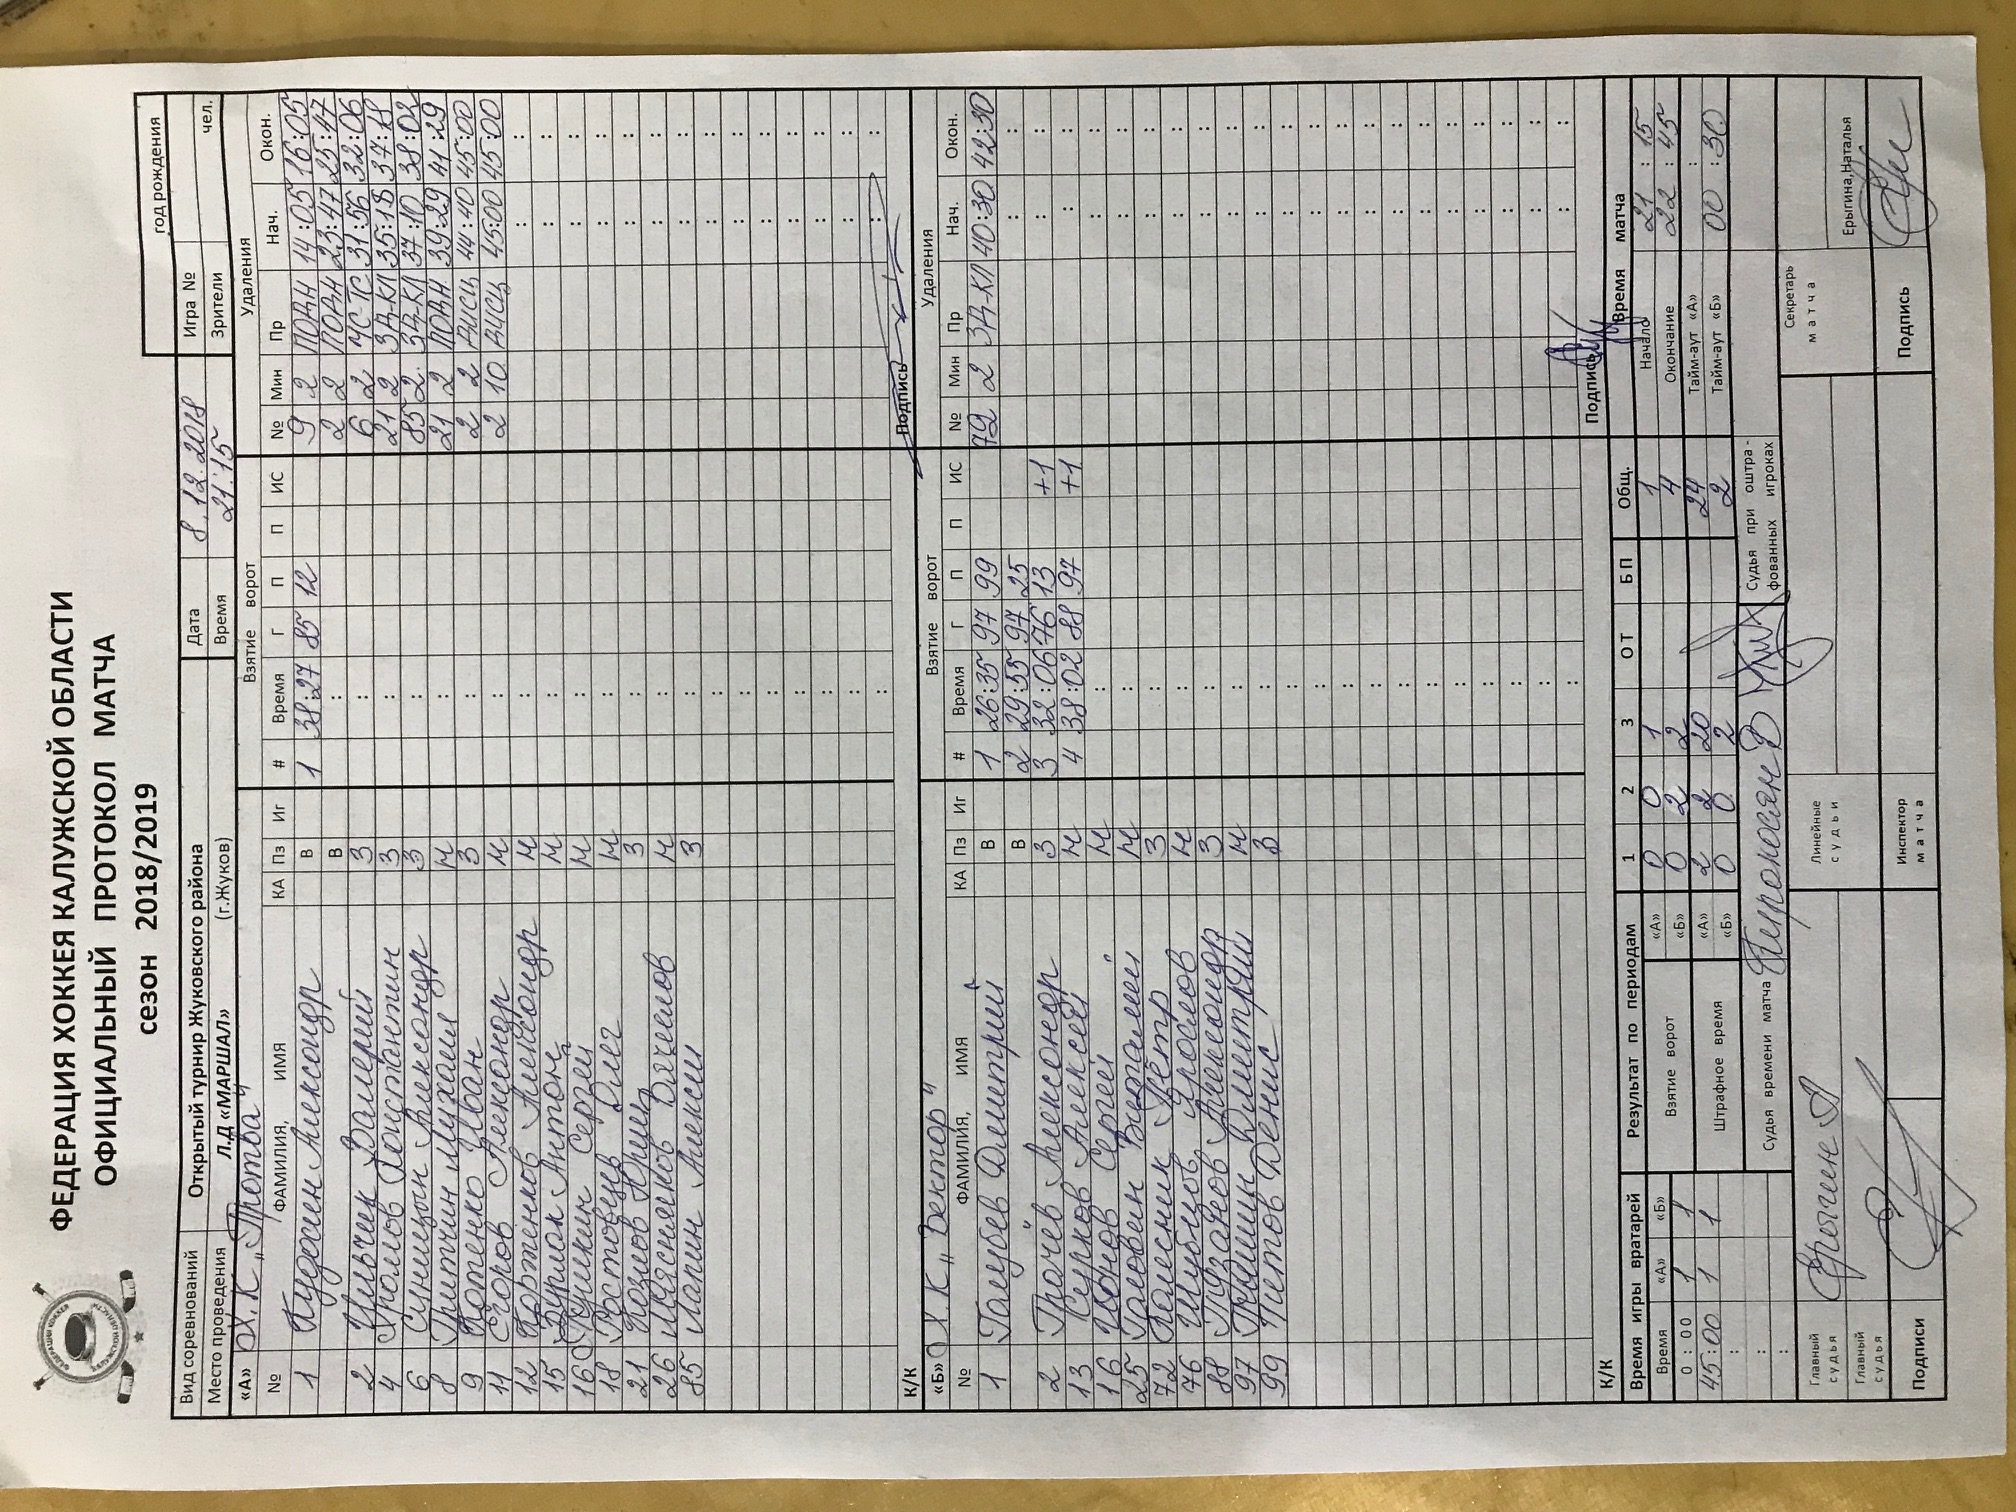 ФЕДЕРАЦИЯ ХОККЕЯ КАЛУЖСКОЙ ОБЛАСТИ
ОФИЦИАЛЬНЫЙ ПРОТОКОЛ МАТЧА
сезон 2018/2019
год рождения
Вид соревнований Открытый турнир Жуковского района Дата 8.12.2018 Игра №
Место проведения Л.Д «МАРШАЛ» (г.Жуков) Время 21:15 Зрители чел.
«А» Х.К „Протва" Взятие ворот Удаления
№ ФАМИЛИЯ, ИМЯ КА Пз Иг # Время Г П П ИС № Мин Пр Нач. Окон.
1 Александр В 1 38:27 85 12 9 2 ПОДН 14:05 16:05
В : 2 2 ПОДН 23:47 25:47
2 Ильчик Валерий З : 6 2 31:56 32:06
4 Громов Константин З : 21 2 ЗД-КЛ 35:18 37:18
6 Синицын Александр З : 85 2 ЗД-КЛ 37:10 38:02
8 Михаил Н : 21 2 ПОДН 39:29 41:29
9 Котенко Иван З : 2 2 44:40 45:00
11 Егоров Александр Н : 2 10 45:00 45:00
12 Корженков Александр Н : : :
15 Бурлак Антон Н : : :
16 Сергей Н : : :
18 Ростовцев Олег Н : : :
21 Козлов Юрий З : : :
26 Мясняков Вячеслав Н : : :
85 Лапин Алексей З : : :
К/К Подпись
«Б» Х К „Вектор" Взятие ворот Удаления
№ ФАМИЛИЯ, ИМЯ КА Пз Иг # Время Г П П ИС № Мин Пр Нач. Окон.
1 Голубев Дмитрий В 1 26:35 97 99 72 2 ЗД-КЛ 40:30 42:30
В 2 29:55 97 25 : :
2 Грачёв Александр З 3 32:06 76 13 +1 : :
13 Сурков Алексей Н 4 38:02 88 97 +1 : :
16 Ионов Сергей Н : : :
25 Головен Виталий Н : : :
72 Колесник Пётр З : : :
76 Шубцов Ярослав Н : : :
88 Пузанов Александр З : : :
97 Дмитрий Н : : :
99 Титов Денис З : : :
К/К Подпись
Время игры вратарей Результат по периодам 1 2 3 ОТ БП Общ. Время матча
Время «А» «Б» Взятие ворот «А» 0 0 1 1 Начало 21 : 15
0 : 00 1 1 «Б» 0 2 2 4 Окончание 22 : 45
45:00 1 1 Штрафное время «А» 2 2 20 24 Тайм-аут «А» :
: «Б» 0 0 2 2 Тайм-аут «Б» 00 : 30
: Судья времени матча Судья при оштрафованных игроках
Главный судья Ерыгин А Линейные судьи Секретарь матча Ерыгина Наталья
Главный судья
Подписи Инспектор матча Подпись